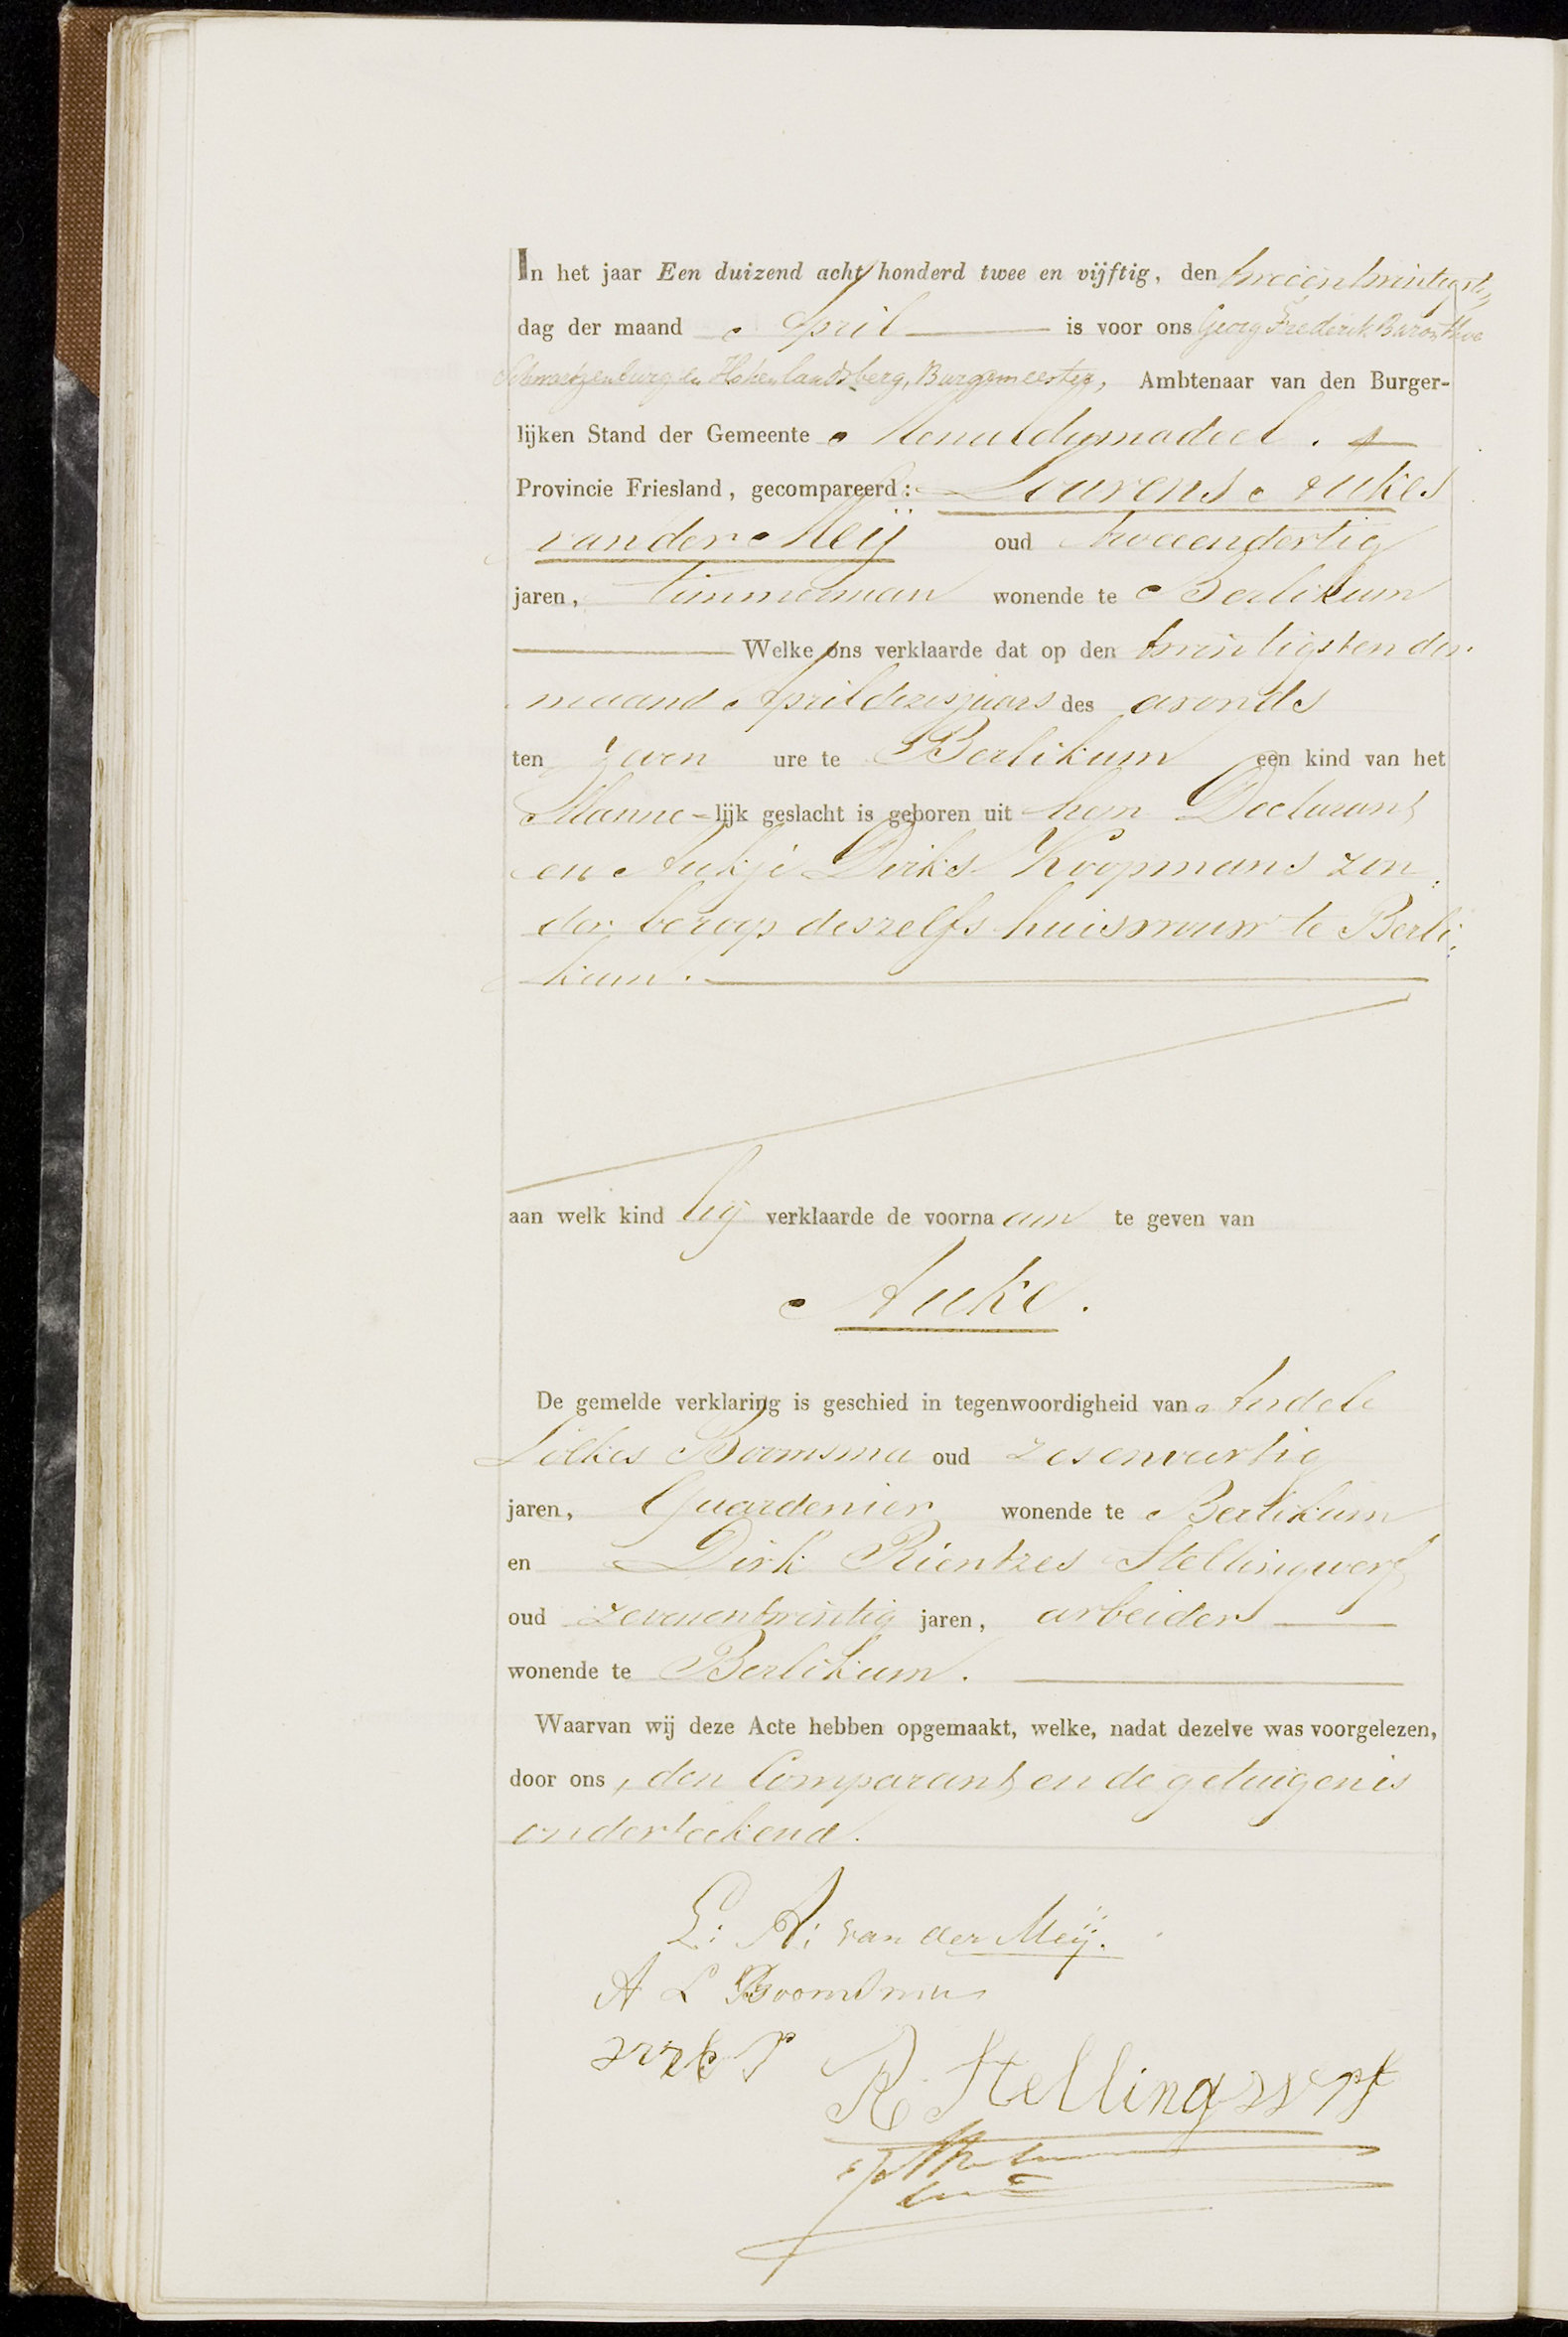 In het jaar Een duizend acht honderd twee en vijftig, den tweeentwintigsten
dag der maand April is voor ons Georg Frederik Baron thoe
Schwartzenburg en Hohenlandsberg, Burgemeester, Ambtenaar van den Burger-
lijken Stand der Gemeente Menaldumadeel.
Provincie Friesland, gecompareerd: Lourens Aukes
van der Meij oud tweeendertig
jaren, timmerman wonende te Berlikum
Welke ons verklaarde dat op den twintigsten der
maand April dezes jaars des avonds
ten zeven ure te Berlikum een kind van het
Manne-lijk geslacht is geboren uit hem Declarant
en Aukje Dirks Koopmans zon
der beroep deszelfs huisvrouw te Berli:
kum.
aan welk kind hij verklaarde de voornaam te geven van
Auke.
De gemelde verklaring is geschied in tegenwoordigheid van Andele
Lolkes Boomsma oud zesenveertig
jaren, Gaardenier wonende te Berlikum
en Dirk Rientzes Stellingwerf
oud zevenentwintig jaren, arbeider
wonende te Berlikum.
Waarvan wij deze Acte hebben opgemaakt, welke, nadat dezelve was voorgelezen,
door ons, den Comparant en de getuigen is
onderteekend.
L: A: van der Meij.
A L Boomsma
R Stellingwerf